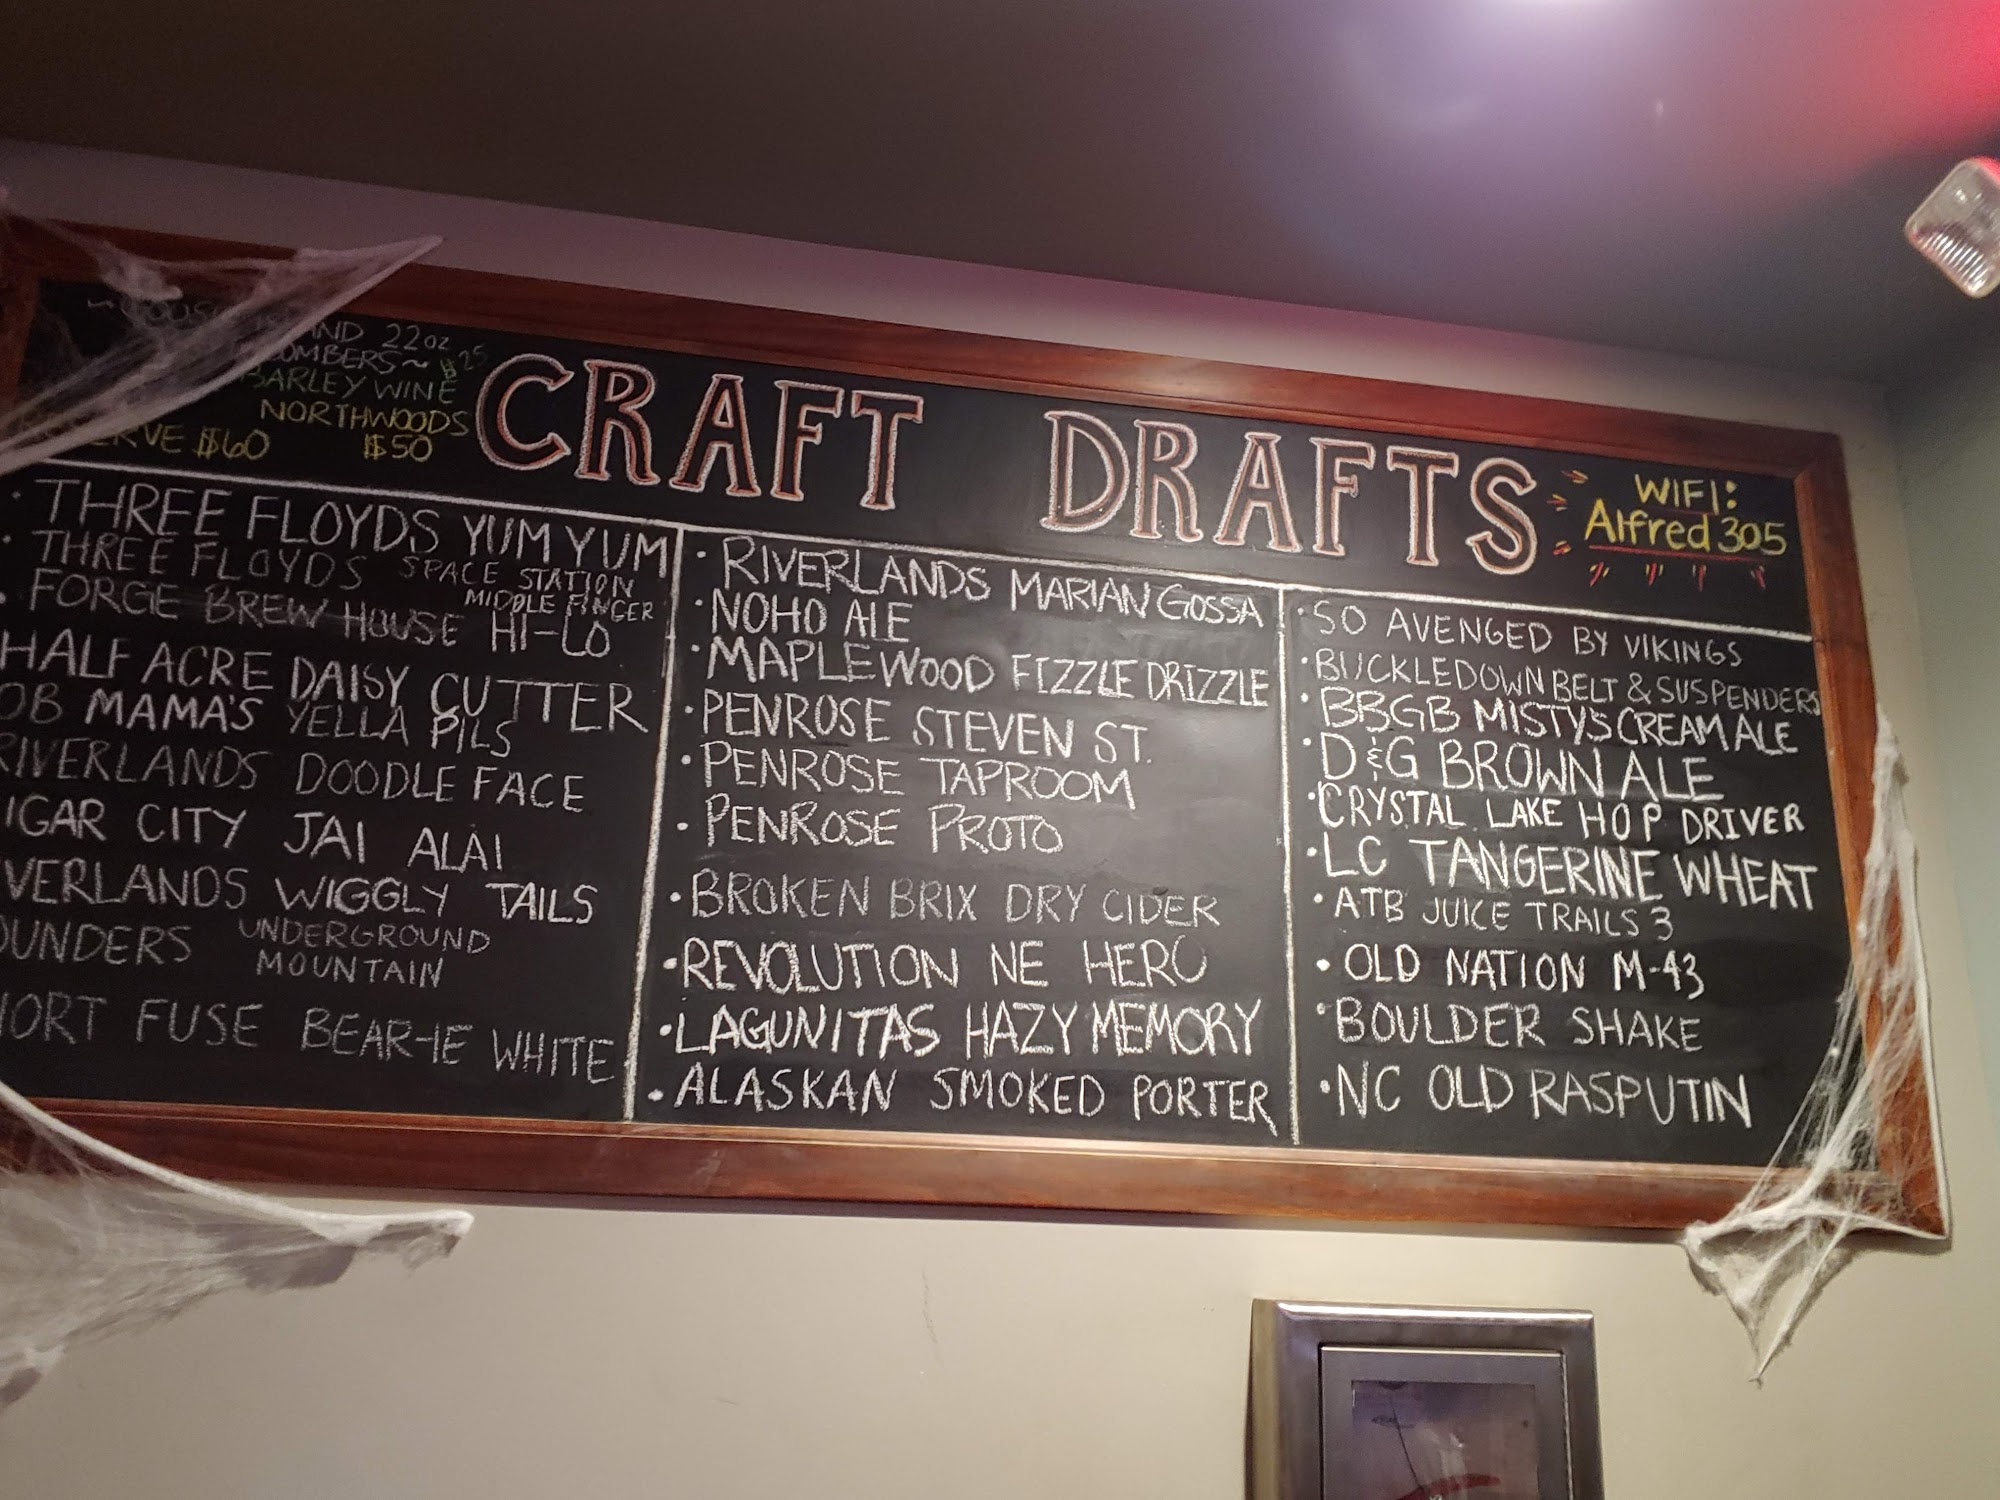 AND 22oz
BOMBERS~ $25
BARLEY WINE
NORTHWOODS
$60 $50
CRAFT DRAFTS
WIFI:
Alfred 305
• THREE FLOYDS YUM YUM
• THREE FLOYDS SPACE STATION
MIDDLE FINGER
• FORGE BREW HOUSE HI-LO
HALF ACRE DAISY CUTTER
OB MAMA'S YELLA PILS
RIVERLANDS DOODLE FACE
IGAR CITY JAI ALAI
VERLANDS WIGGLY TAILS
OUNDERS UNDERGROUND
MOUNTAIN
HORT FUSE BEAR-IE WHITE
• RIVERLANDS MARIAN GOSSA
• NOHO ALE
• MAPLEWOOD FIZZLE DRIZZLE
• PENROSE STEVEN ST.
• PENROSE TAPROOM
• PENROSE PROTO
• BROKEN BRIX DRY CIDER
• REVOLUTION NE HERO
• LAGUNITAS HAZY MEMORY
• ALASKAN SMOKED PORTER
• SO AVENGED BY VIKINGS
• BUCKLEDOWN BELT & SUSPENDERS
• BBGB MISTY'S CREAM ALE
• D&G BROWN ALE
• CRYSTAL LAKE HOP DRIVER
• LC TANGERINE WHEAT
• ATB JUICE TRAILS 3
• OLD NATION M-43
• BOULDER SHAKE
• NC OLD RASPUTIN